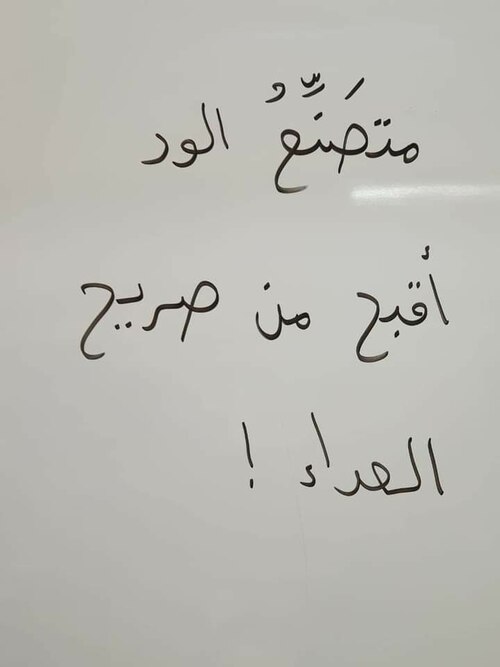 متصَنِّعُ الود
أقبح من صريح
العداء !